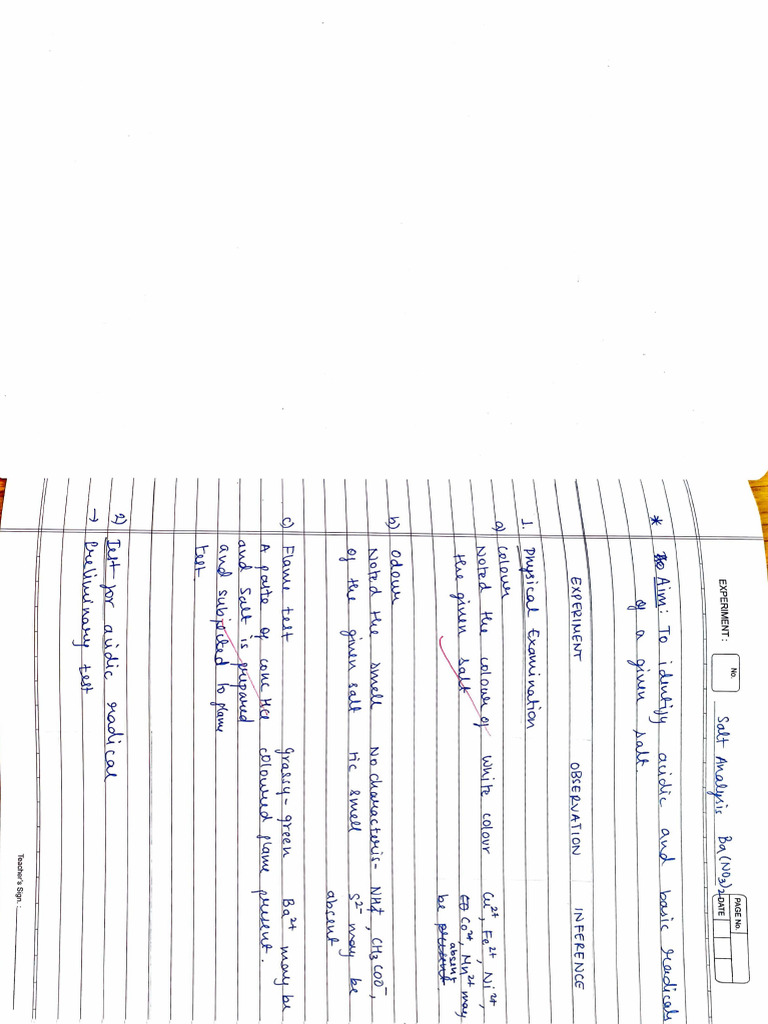 EXPERIMENT: No. Salt Analysis Ba(NO3)2 PAGE No. DATE
* Aim: To identify acidic and basic radicals
of a given salt.
EXPERIMENT OBSERVATION INFERENCE
1. Physical Examination
a) Colour
Noted the colour of White colour Cu2+, Fe2+, Ni2+,
the given salt Co2+, Mn2+ may
be absent
b) Odour
Noted the smell No characteris- NH4+, CH3COO-,
of the given salt tic smell S2- may be
absent
c) Flame test grassy-green Ba2+ may be
A paste of conc HCl coloured flame present.
and salt is prepared
and subjected to flame
test.
2) Test for acidic radical
→ Preliminary test
Teacher's Sign.: